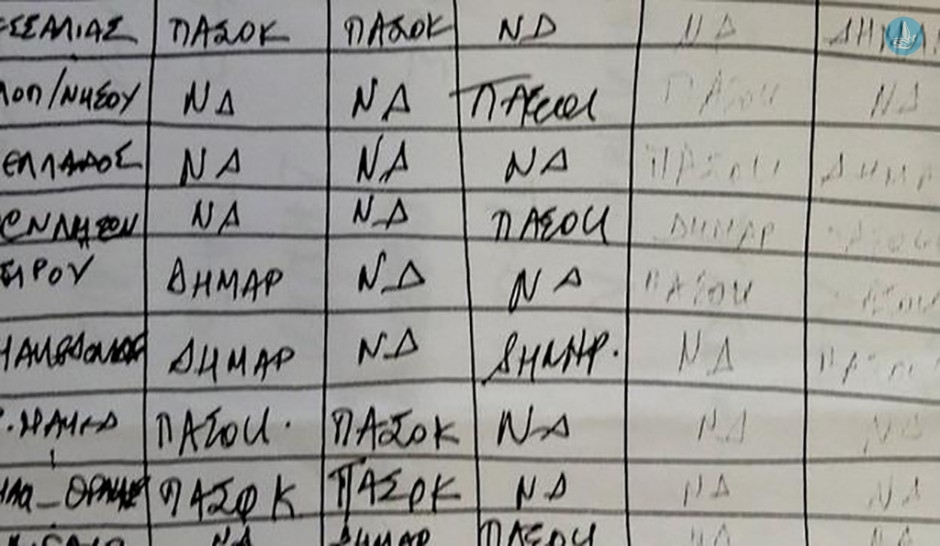 ΣΣΑΛΙΑΣ ΠΑΣΟΚ ΠΑΣΟΚ ΝΔ ΝΔ ΔΗΜΑΡ
ΛΟΠ/ΝΗΣΟΥ ΝΔ ΝΔ ΠΑΣΟΚ ΠΑΣΟΚ ΝΔ
ΕΛΛΑΔΟΣ ΝΔ ΝΔ ΝΔ ΠΑΣΟΚ ΔΗΜΑΡ
ΝΔ ΝΔ ΠΑΣΟΚ ΔΗΜΑΡ ΠΑΣΟΚ
ΕΙΡΟΥ ΔΗΜΑΡ ΝΔ ΝΔ ΠΑΣΟΚ ΑΣΟΚ
ΔΗΜΑΡ ΝΔ ΔΗΜΑΡ. ΝΔ ΠΑΣΟΚ
ΠΑΣΟΚ. ΠΑΣΟΚ ΝΔ ΝΔ ΝΔ
ΠΑΣΟΚ ΠΑΣΟΚ ΝΔ ΝΔ ΝΔ
ΝΔ ΔΗΜΑΡ ΠΑΣΟΚ